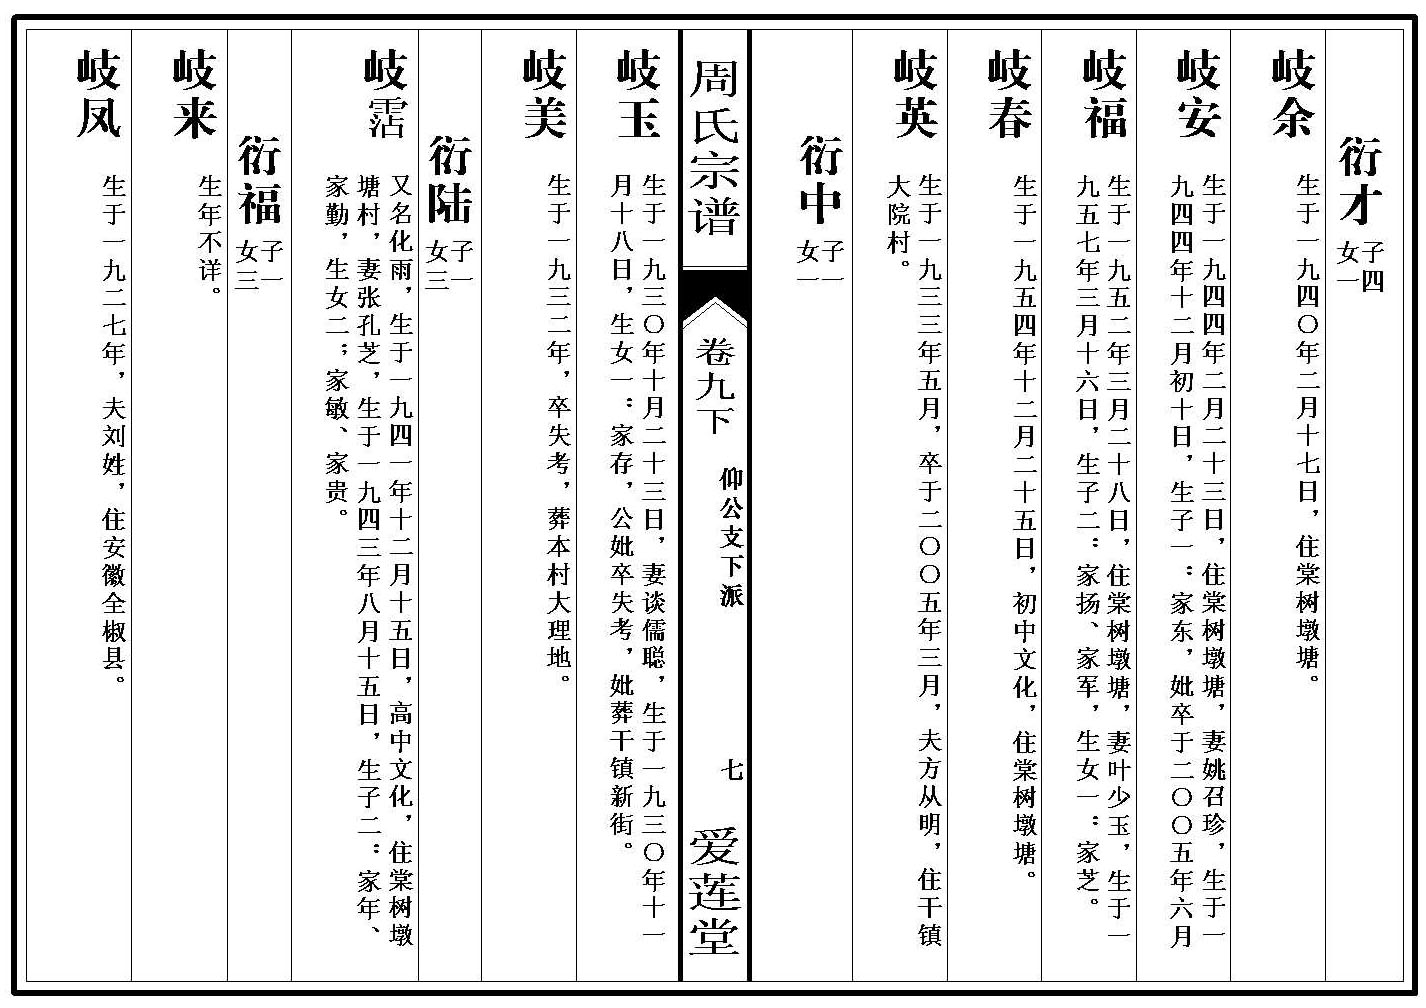 衍才 子四
女一
岐余 生于一九四〇年二月十七日，住棠树墩塘。
岐安 生于一九四四年二月二十三日，住棠树墩塘，妻姚召珍，生于一
九四四年十二月初十日，生子一：家东，妣卒于二〇〇五年六月
岐福 生于一九五二年三月二十八日，住棠树墩塘，妻叶少玉，生于一
九五七年三月十六日，生子二：家扬、家军，生女一：家芝。
岐春 生于一九五四年十二月二十五日，初中文化，住棠树墩塘。
岐英 生于一九三三年五月，卒于二〇〇五年三月，夫方从明，住干镇
大院村。
衍中 子一
女一
周氏宗谱
卷九下
仰公支下派
七
爱莲堂
岐玉 生于一九三〇年十月二十三日，妻谈儒聪，生于一九三〇年十一
月十八日，生女一：家存，公妣卒失考，妣葬干镇新街。
岐美 生于一九三二年，卒失考，葬本村大理地。
衍陆 子一
女三
岐霑 又名化雨，生于一九四一年十二月十五日，高中文化，住棠树墩
塘村，妻张孔芝，生于一九四三年八月十五日，生子二：家年、
家勤，生女二；家敏、家贵。
衍福 子一
女三
岐来 生年不详。
岐凤 生于一九二七年，夫刘姓，住安徽全椒县。